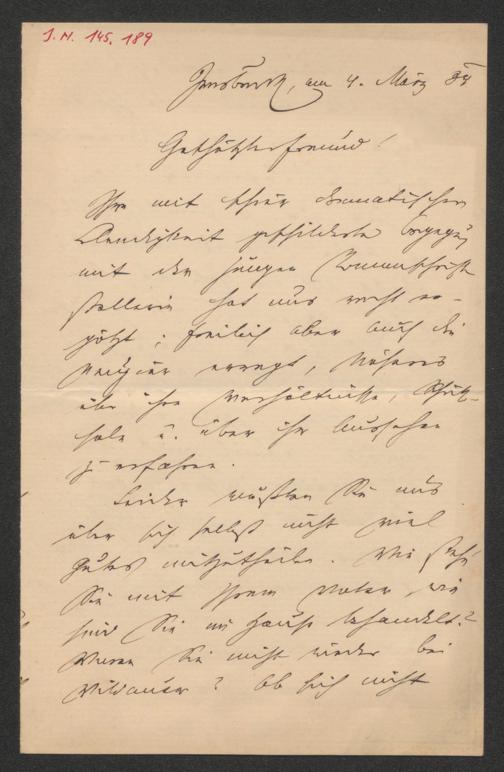 J. N. 145.189
Innsbruck, am 4. März 84
Geschätzter Freund!
Ihre mit schier dramatischer
Lebendigkeit geschilderte Begegnung
mit der jungen Romanschrift-
stellerin hat uns recht er-
götzt; freilich aber auch die
Neugier erregt, Näheres
über ihre Verhältnisse, Schick-
sale u. über ihr Aussehen
zu erfahren.
Leider wußten Sie uns
über sich selbst nicht viel
Gutes mitzutheilen. Wie stehen
Sie mit Ihrem Vater, wie
sind Sie im Hause behandelt?
Waren Sie nicht wieder bei
Wildauer? Ob sich nicht